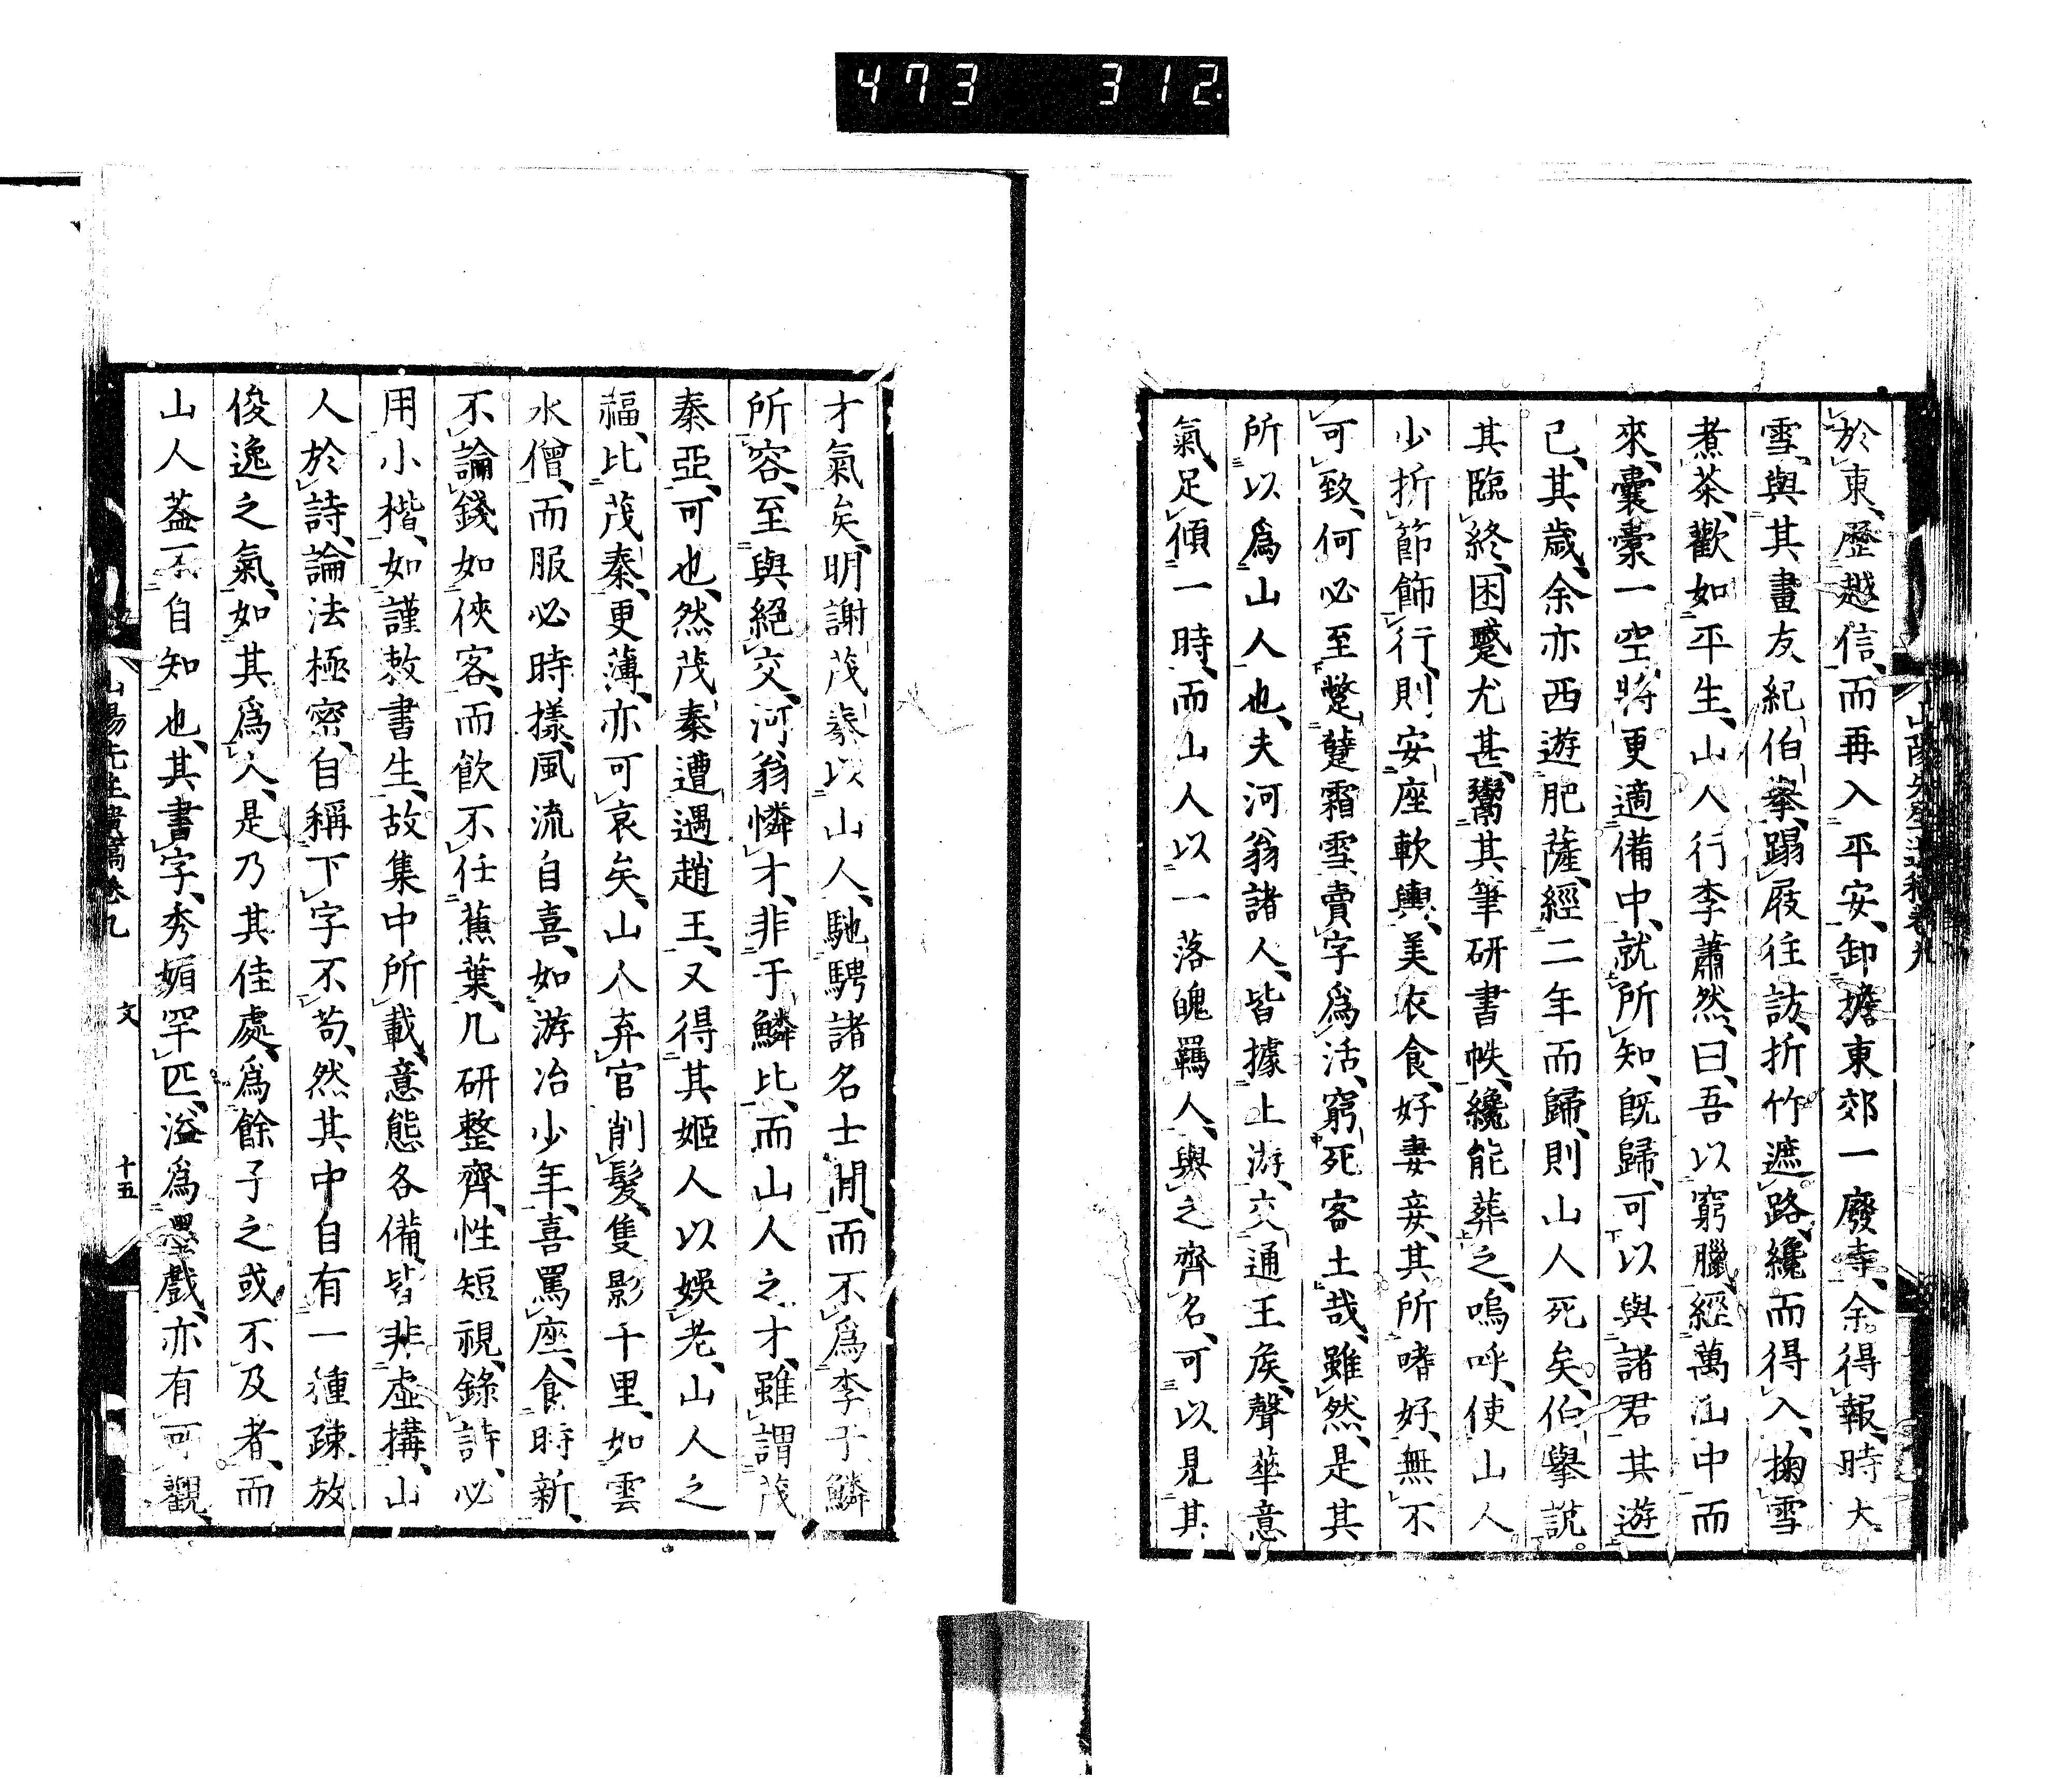 473 312.
於東、歷越信、而再入平安、卸擔東郊一廢寺、余得報、時大
雪、與其畫友紀伯擧、蹋屐往訪、折竹遮路、纔而得入、掬雪
煮茶、歡如平生、山人行李蕭然、曰、吾以窮臘、經萬山中而
來、囊橐一空、將更適備中、就所知、旣歸、可以與諸君其遊
已、其歲、余亦西遊肥薩、經二年而歸、則山人死矣、伯擧説
其臨終、困蹙尤甚、鬻其筆研書帙、纔能葬之、嗚呼、使山人
少折節飾行、則安座軟輿、美衣食、好妻妾、其所嗜好、無不
可致、何必至蹩躠霜雪、賣字爲活、窮死客土哉、雖然、是其
所以爲山人也、夫河翁諸人、皆據上游、交通王侯、聲華意
氣、足傾一時、而山人以一落魄羈人、與之齊名、可以見其
山陽先生遺稿卷九
才氣矣、明謝茂秦以山人、馳騁諸名士間、而不爲李于鱗
所容、至與絕交、河翁憐才、非于鱗比、而山人之才、雖謂茂
秦亞、可也、然茂秦遭遇趙王、又得其姬人以娛老、山人之
福、比茂秦、更薄、亦可哀矣、山人弃官削髮、隻影千里、如雲
水僧、而服必時樣、風流自喜、如游冶少年、喜罵座、食時新、
不論錢如俠客、而飮不任蕉葉、几研整齊、性短視、錄詩、必
用小楷、如謹敕書生、故集中所載、意態各備、皆非虛搆、山
人於詩、論法極密、自稱下字不苟、然其中自有一種疎放
俊逸之氣、如其爲人、是乃其佳處、爲餘子之或不及者、而
山人葢不自知也、其書字、秀媚罕匹、溢爲墨戲、亦有可觀、
山陽先生遺稿卷九 文 十五